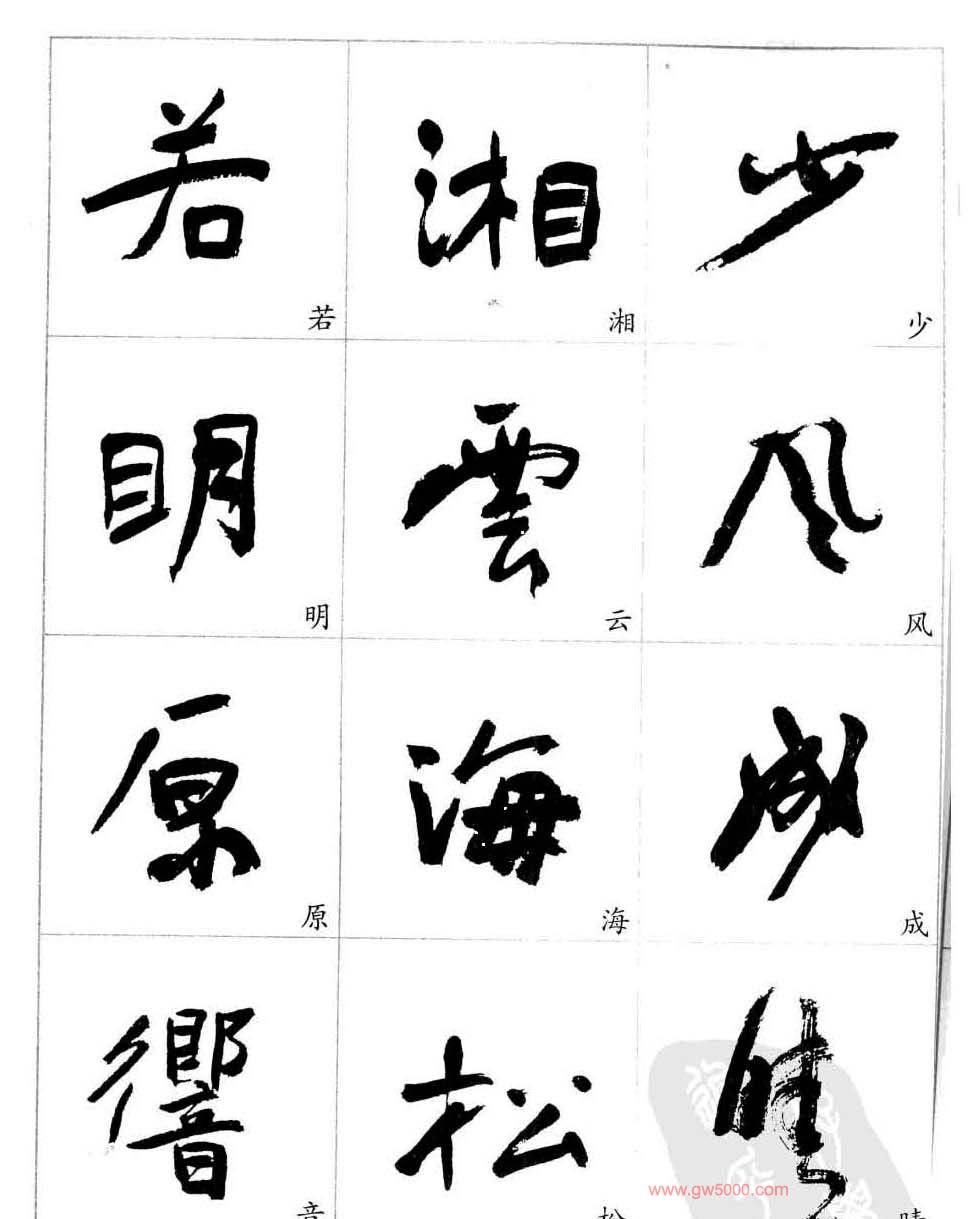 若 湘 少
若 湘 少
明 雲 风
明 云 风
原 海 成
原 海 成
響 松 晴
www.gw5000.com